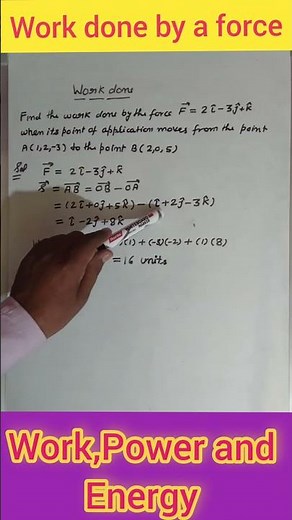 Work done by a force
Work done
Find the work done by the force F⃗ = 2î-3ĵ+k̂
when its point of application moves from the point
A(1,2,-3) to the point B(2,0,5)
Sol
F⃗ = 2î-3ĵ+k̂
S⃗ = AB⃗ = OB⃗ - OA⃗
= (2î+0ĵ+5k̂) - (î+2ĵ-3k̂)
= î-2ĵ+8k̂
(1) + (-3)(-2) + (1)(8)
= 16 units
Work,Power and
Energy